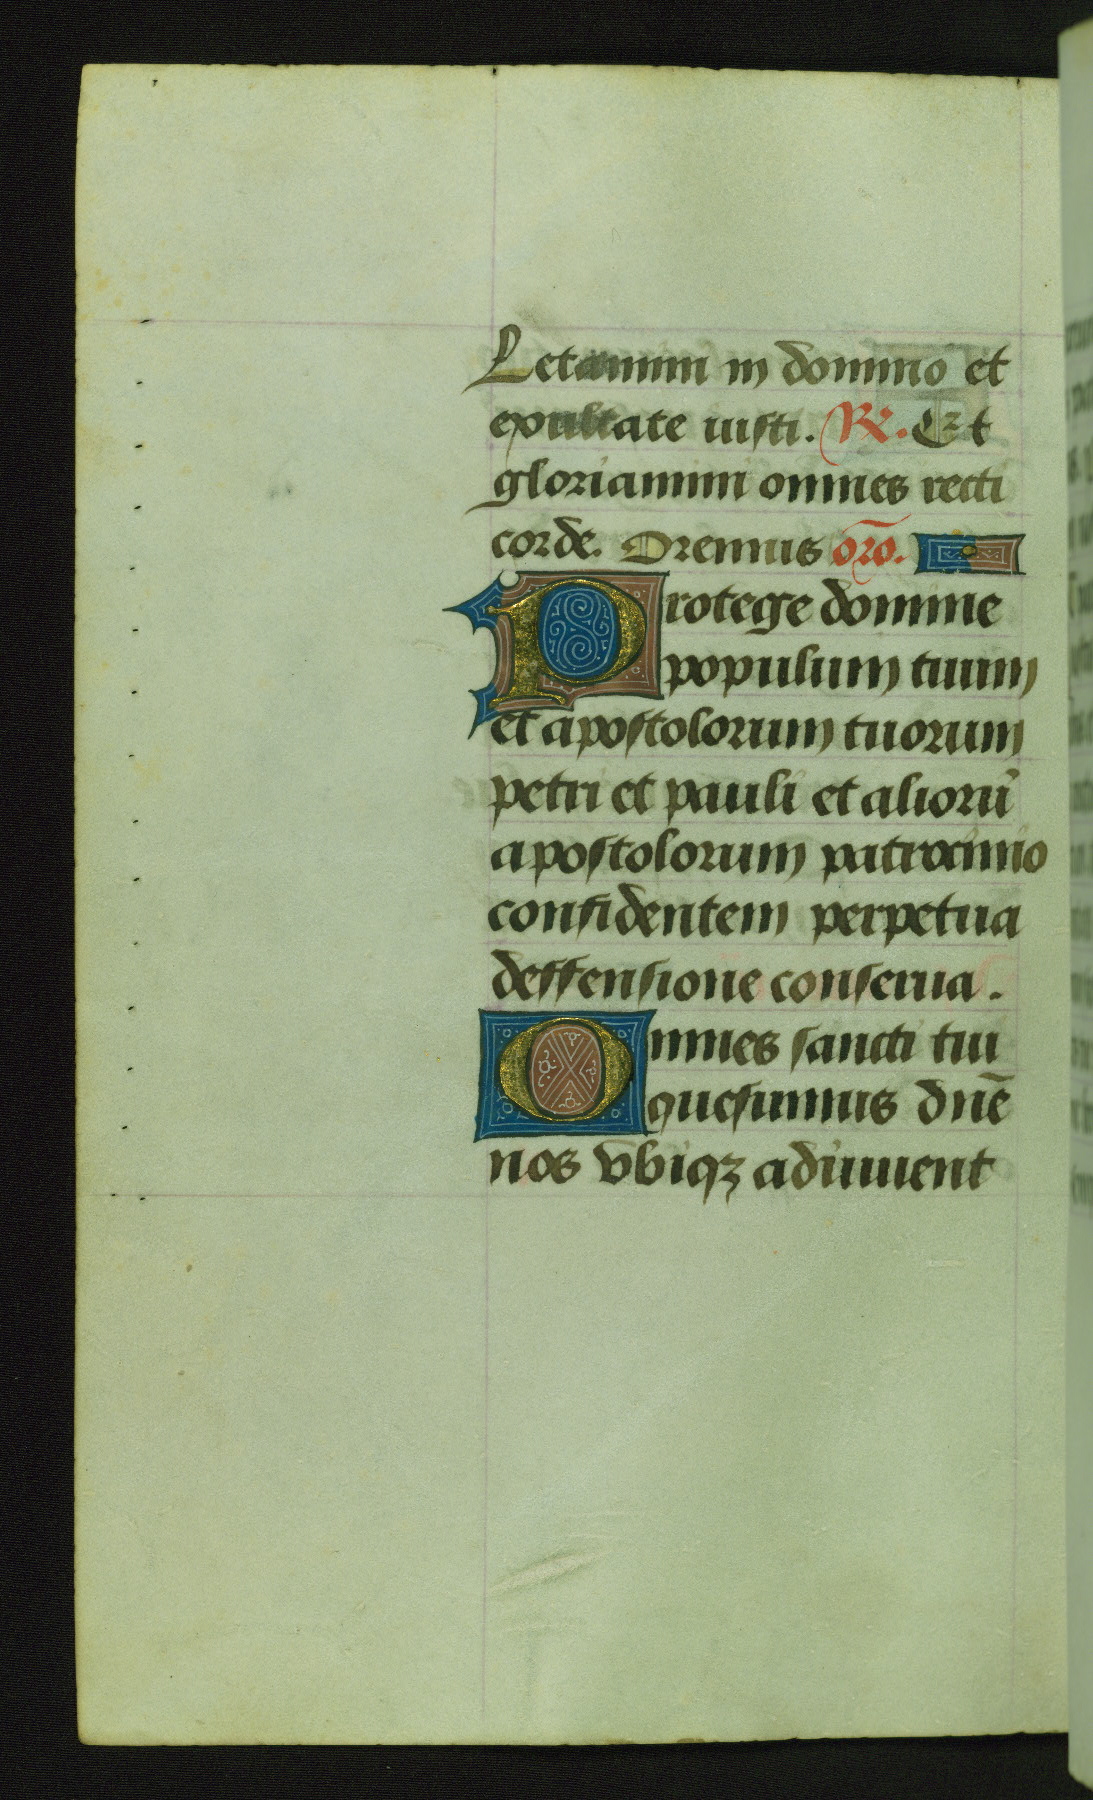 Letamini in domino et
exultate iusti. R. Et
gloriamini omnes recti
corde. Oremus oro͂.
Protege domine
populum tuum
et apostolorum tuorum
petri et pauli et alioru͂
apostolorum patrocinio
confidentem perpetua
deffensione conserua.
Omnes sancti tui
quesumus dne͂
nos vbiqꝫ adiuuent